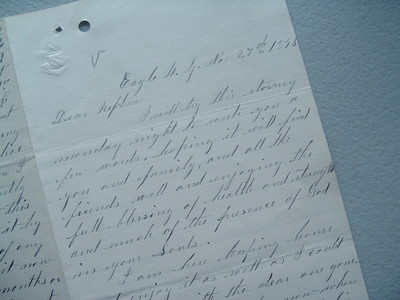 V
Eagle N.Y. Nov 27th 18
Dear Nephew
I will by this stormy
monday night send you a
few words, hoping it will find
you and family, and all the
friends well and enjoying the
full blessing of health and strength
and much of the presence of God
in your souls.
I am here keeping house
enjoy it as well as I could
with the dear ones gone
when
has
this
it by
of any
it now
months or